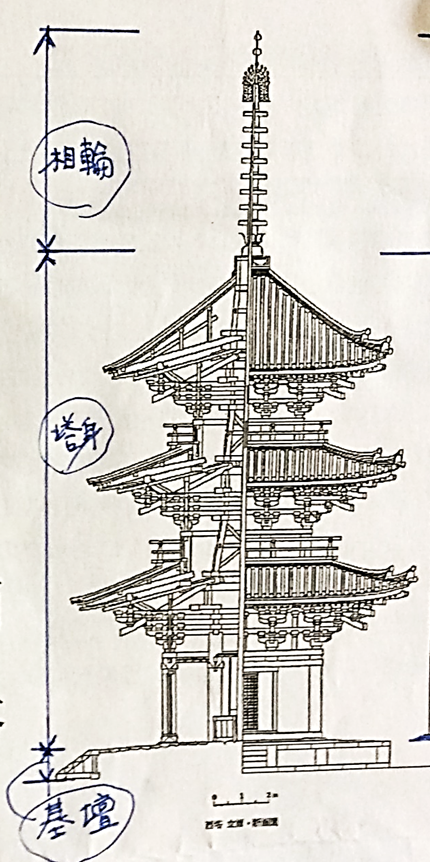 相輪
塔身
基壇
0 1 2m
西塔 立面・断面図